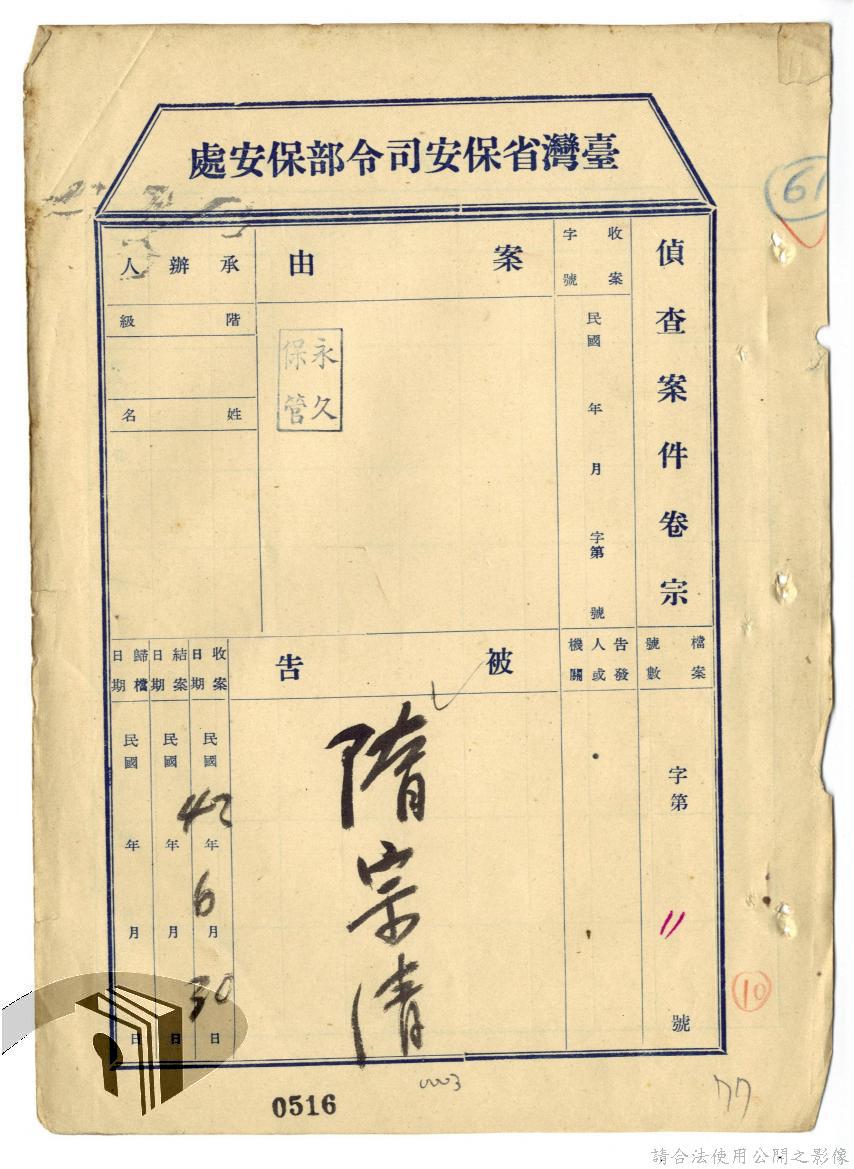 臺灣省保安司令部保安處
偵查案件卷宗
收案
字號
民國 年 月 字第 號
案由
永久
保管
承辦人
階級
姓名
檔案
號數
字第 11 號
告發
人或
機關
被告
隋宗清
收案
日期
民國 42 年 6 月 30 日
結案
日期
民國 年 月 日
歸檔
日期
民國 年 月 日
61
10
0516
0003
77
請合法使用公開之影像